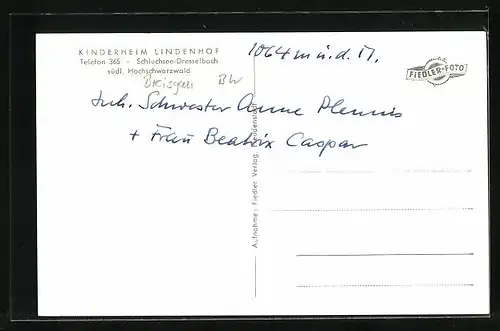 KINDERHEIM LINDENHOF
Telefon 365 - Schluchsee-Dresselbach
südl. Hochschwarzwald
1064 m ü. d. M.
FIEDLER-FOTO
Breisgau BW
Inh. Schwester Anne Plennis
+ Frau Beatrix Caspar
Aufnahme: Fiedler Verlag